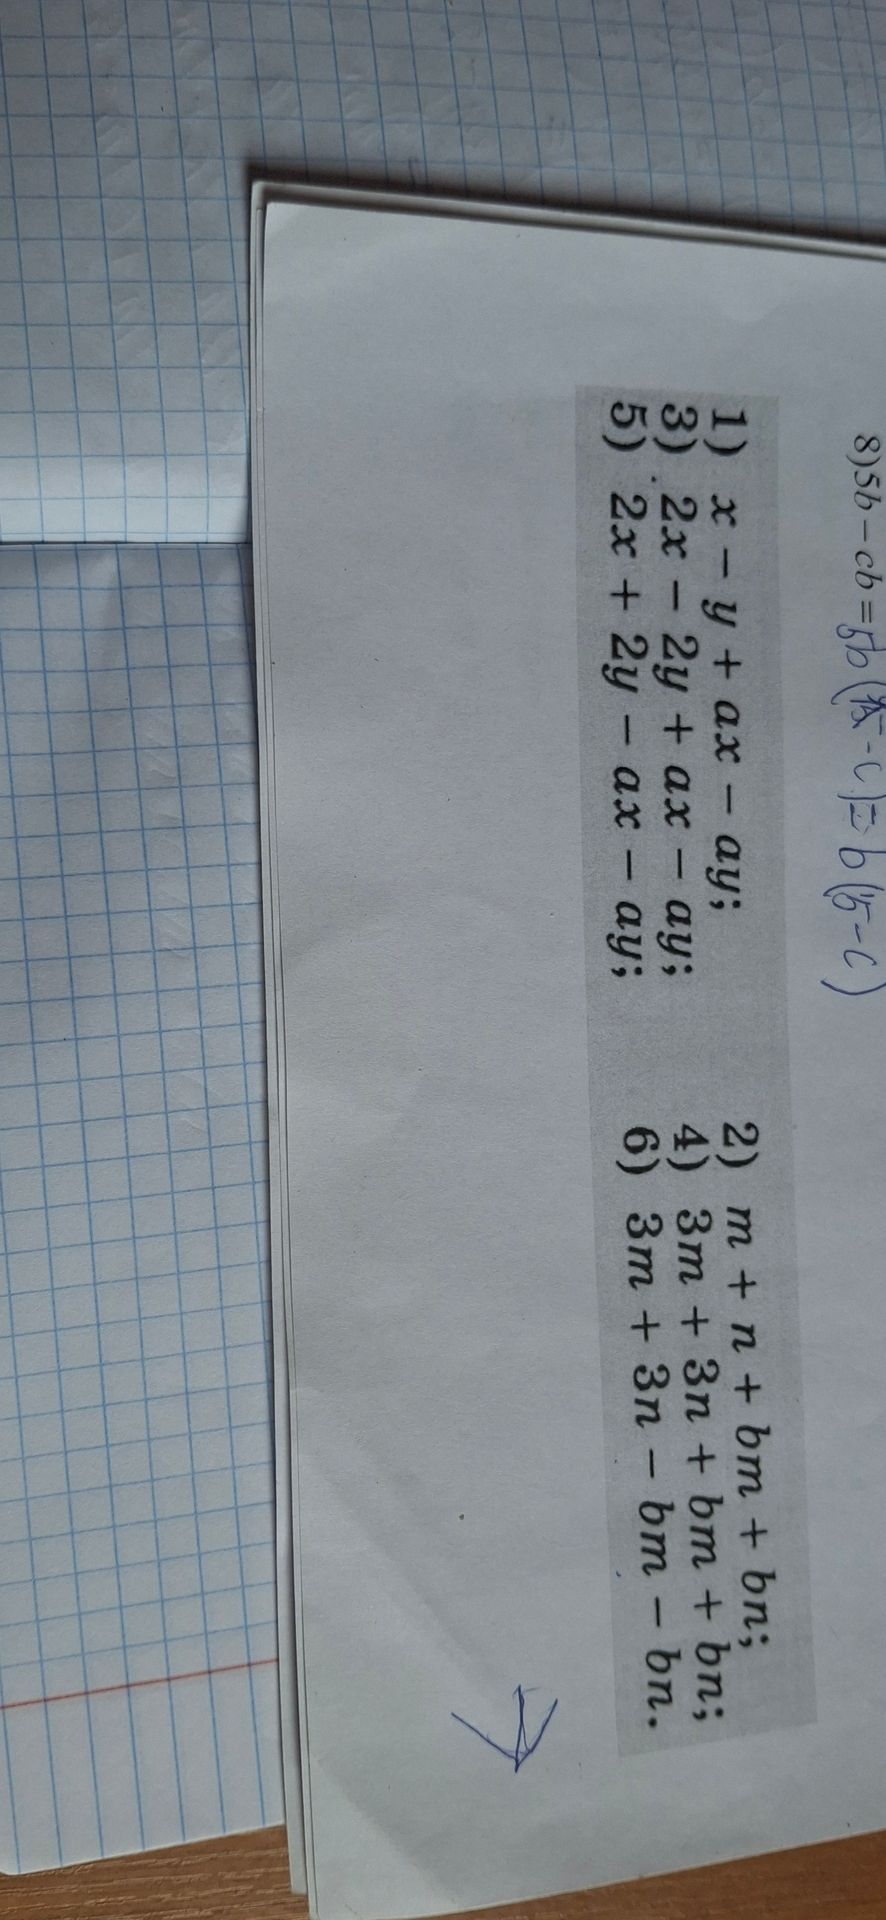 8)5b – cb = b(5 - c)
1) x – y + ax – ay;
2) m + n + bm + bn;
3) 2x – 2y + ax – ay;
4) 3m + 3n + bm + bn;
5) 2x + 2y – ax – ay;
6) 3m + 3n – bm – bn.